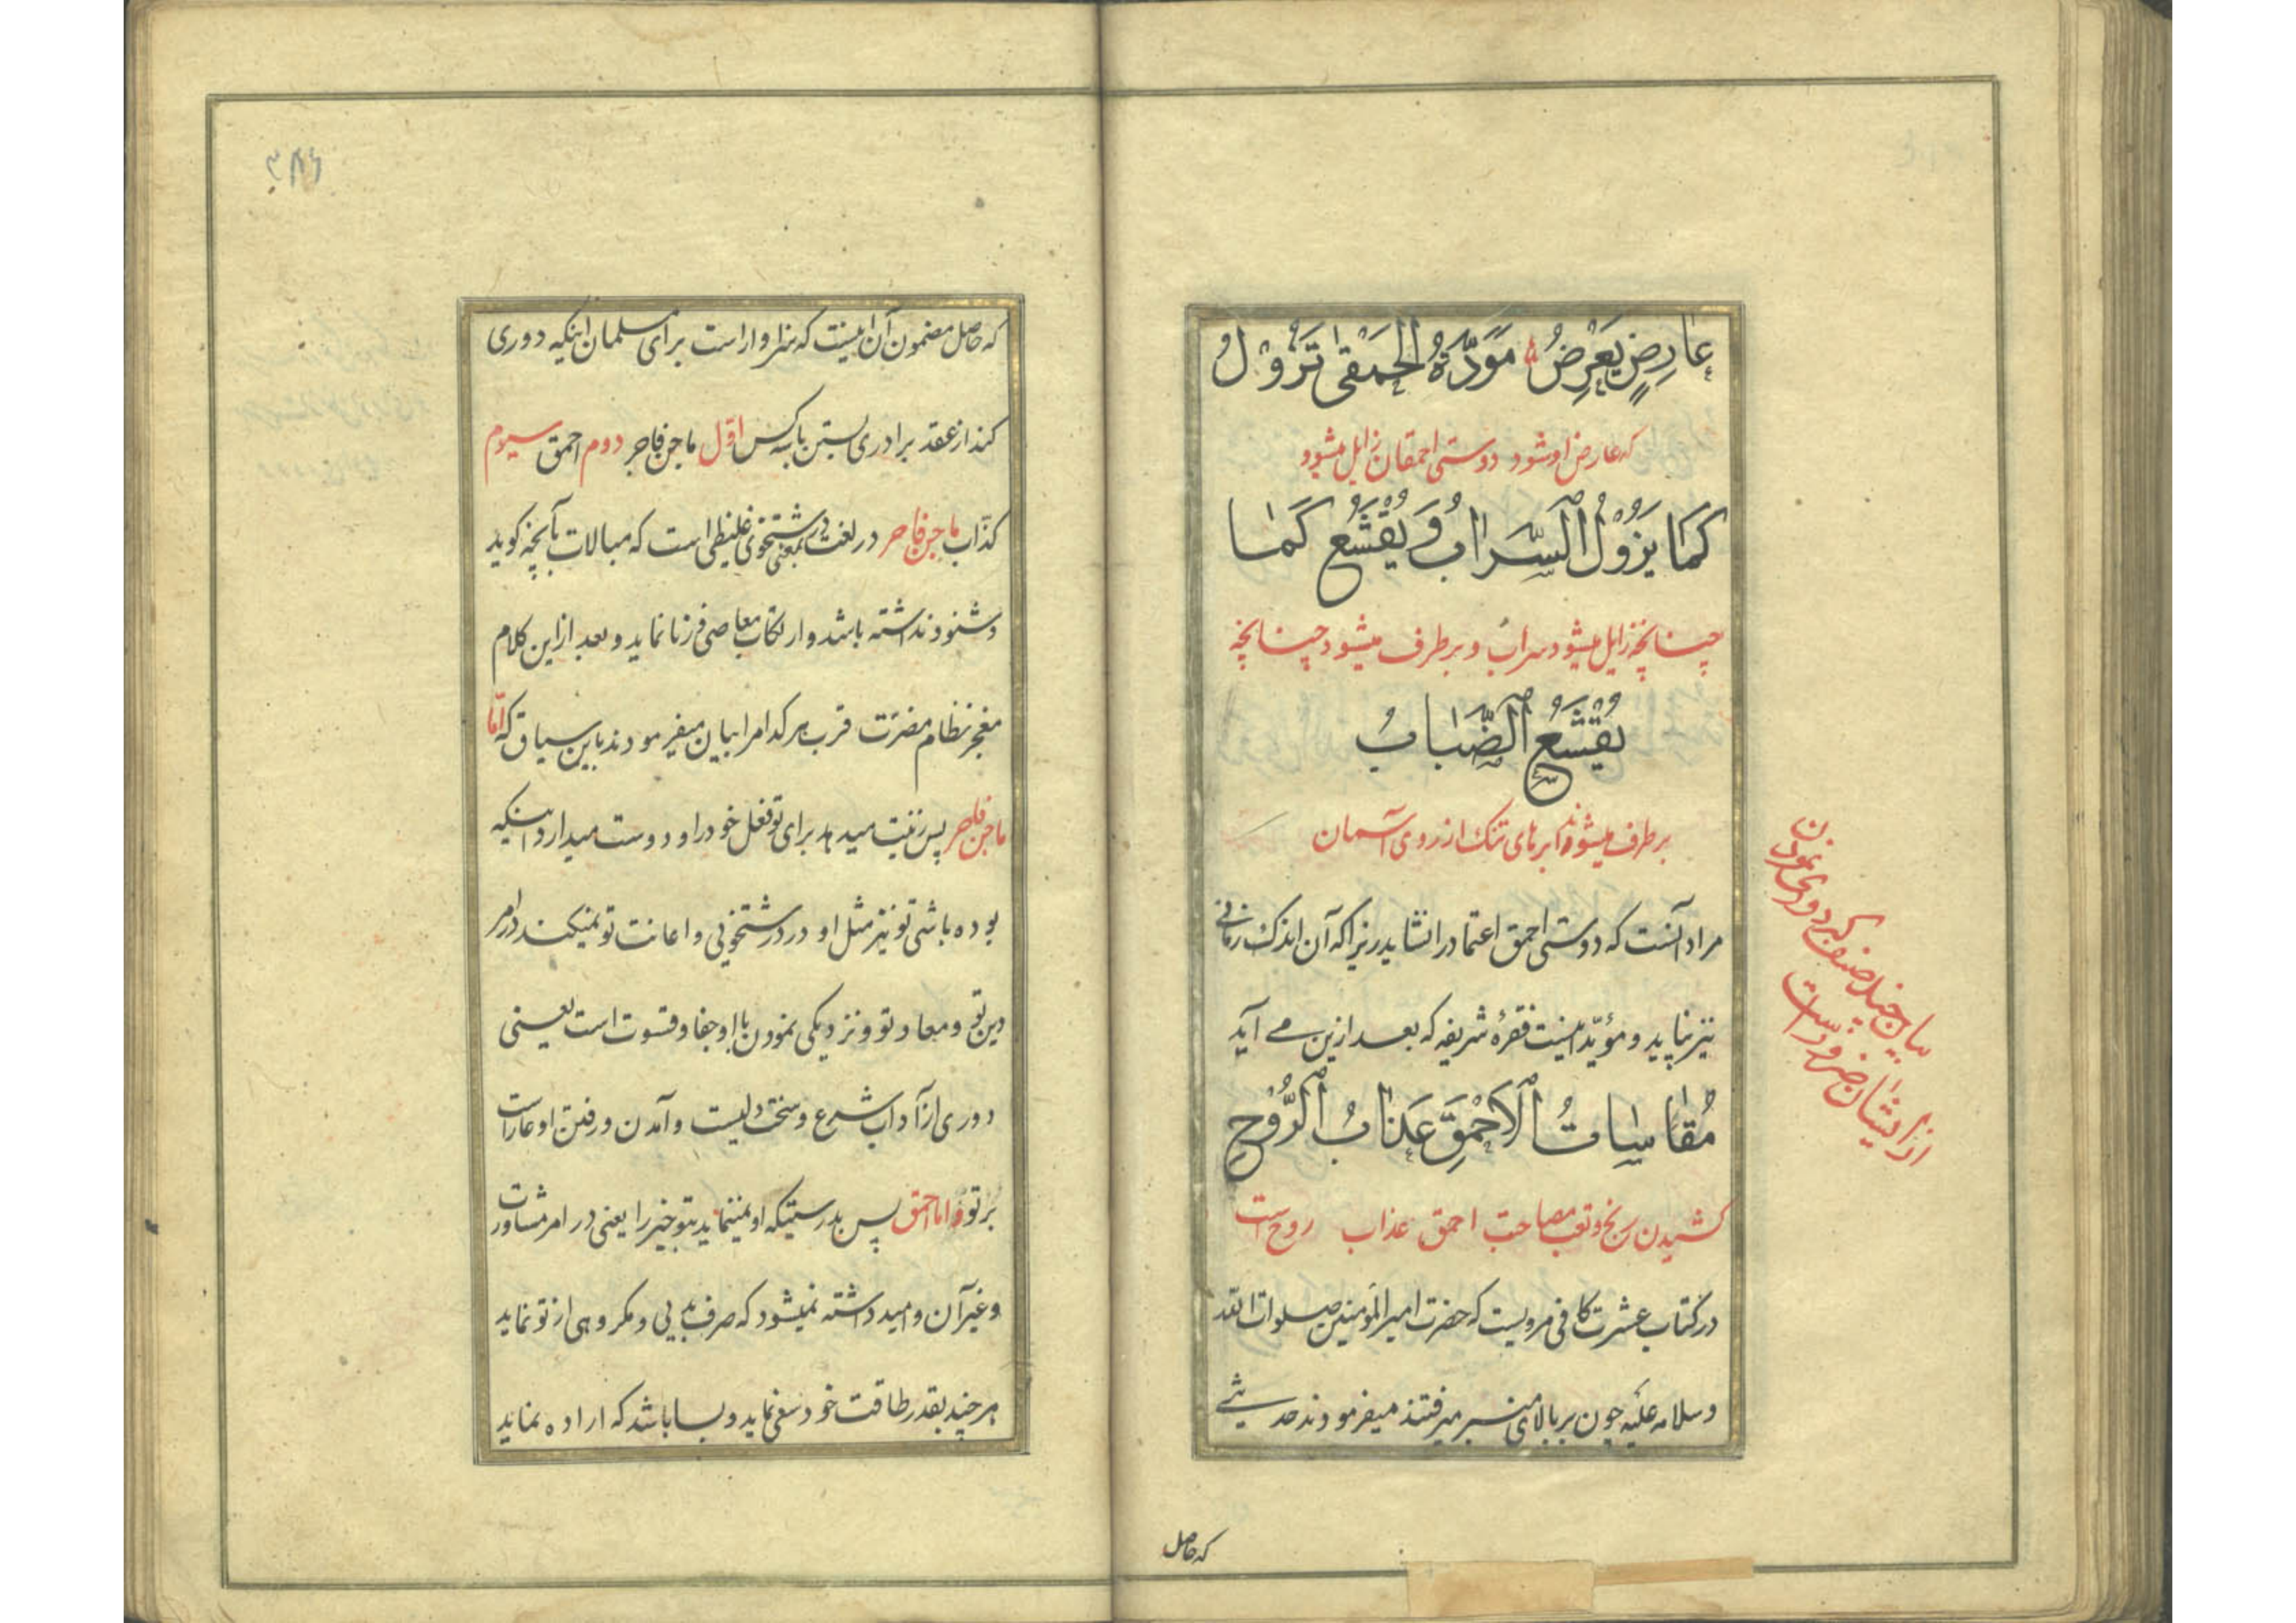 عارِضٍ يَعْرِضُ ۞ مَوَدَّةُ الحَمْقىٰ تَزُوْلُ
که عارض او شود دوستی احمقان زایل میشود
كَمٰا يَزُوْلُ السَّرٰابُ وَيُقْشَعُ كَمٰا
چنانچه زایل میشود سراب و برطرف میشود چنانچه
يُقْشَعُ الضَّبٰابُ
برطرف میشوند ابرهای تنک از روی آسمان
مراد آنست که دوستی احمق اعتماد را نشاید زیرا که آن اندک زمانی
نیز نپاید و مؤیّد اینست فقرهٔ شریفه که بعد ازین می آید
مُقٰاسٰاتُ الاَحْمَقِ عَذٰابُ الرُّوْحِ
کشیدن رنج و تعب مصاحبت احمق عذاب روح است
در کتاب عشرت کافی مرویست که حضرت امیرالمؤمنین صلوات الله
وسلامه علیه چون بر بالای منبر میرفتند میفرمودند حدیثی
بیان چند صنف که دوری نمودن
از ایشان ضرورست
که حاصل
۳۸۶
که حاصل مضمون آن اینست که سزاوار است برای مسلمان اینکه دوری
کند از عقد برادری بستن با سه کس اوّل ماجن فاجر دوم احمق سیوم
کذّاب ماجن فاجر در لغت بمعنی درشتخوی غلیظی است که مبالات بآنچه کوید
و شنود نداشته باشد و ارتکاب معاصی و زنا نماید و بعد ازاین کلام
معجز نظام مضرّت قرب هر کدام را بیان میفرمودند باین سیاق که امّا
ماجن فاجر پس زینت میدهد برای تو فعل خود را و دوست میدارد اینکه
بوده باشی تو نیز مثل او در درشتخویی و اعانت تو نمیکند در امر
دین تو و معاد تو و نزدیکی نمودن با او جفا و قسوت است یعنی
دوری از آداب شرع و سخت دلیست و آمدن و رفتن او عار است
بر تو و اما احمق پس بدرستیکه او نمینماید بتو خیر را یعنی در امر مشاورت
و غیر آن و امید داشته نمیشود که صرف بدیی و مکروهی از تو نماید
هر چند بقدر طاقت خود سعی نماید و بسا باشد که اراده نماید